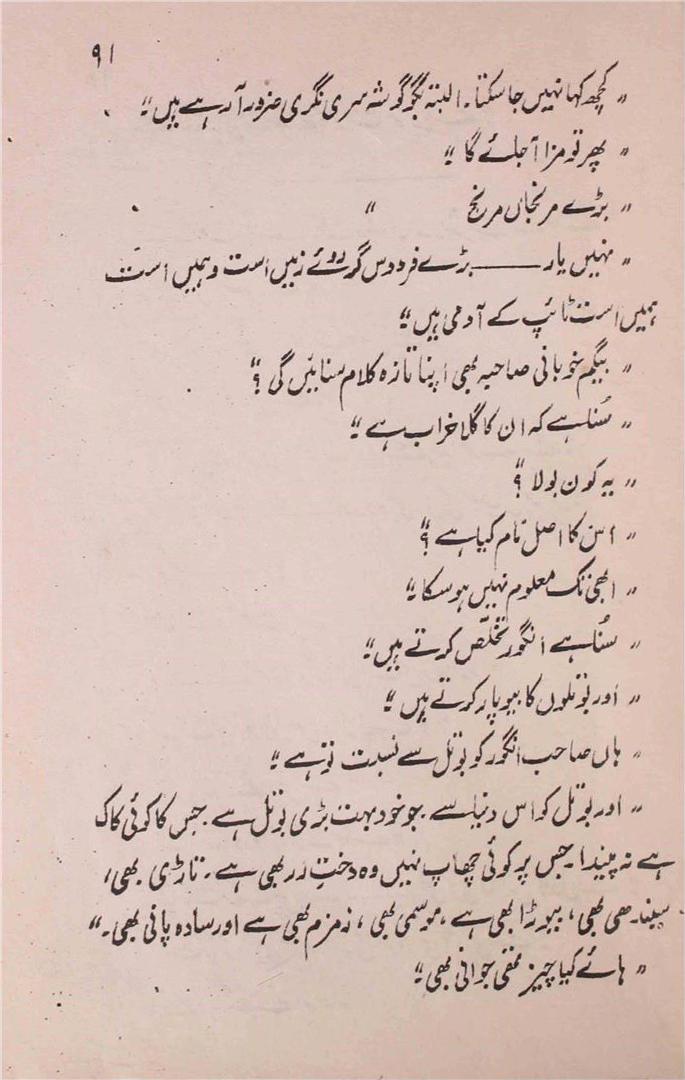 ۹۱
"کچھ کہا نہیں جا سکتا۔ البتہ بگوگوشہ سری نگری ضرور آ رہے ہیں"
"پھر تو مزا آ جائے گا"
"بڑے مرنجاں مرنج"
"نہیں یار ——— بڑے فردوس گر روئے زمیں است و ہمیں است
ہمیں است ٹائپ کے آدمی ہیں"
"بیگم خوبانی صاحبہ بھی اپنا تازہ کلام سنائیں گی؟"
"سُنا ہے کہ ان کا گلا خراب ہے"
"یہ کون بولا؟"
"اس کا اصل نام کیا ہے؟"
"ابھی تک معلوم نہیں ہو سکا"
"سُنا ہے انگور تخلّص کرتے ہیں"
"اور بوتلوں کا بیوپار کرتے ہیں"
"ہاں صاحب انگور کو بوتل سے نسبت تو ہے"
"اور بوتل کو اس دنیا سے جو خود بہت بڑی بوتل ہے جس کا کوئی کاک
ہے نہ پیندا۔ جس پر کوئی چھاپ نہیں وہ دختِ رز بھی ہے۔ تاڑی بھی،
سیندھی بھی، بیوڑا بھی ہے، موسمی بھی، زمزم بھی ہے اور سادہ پانی بھی۔"
"ہائے کیا چیز تھی جوانی بھی"